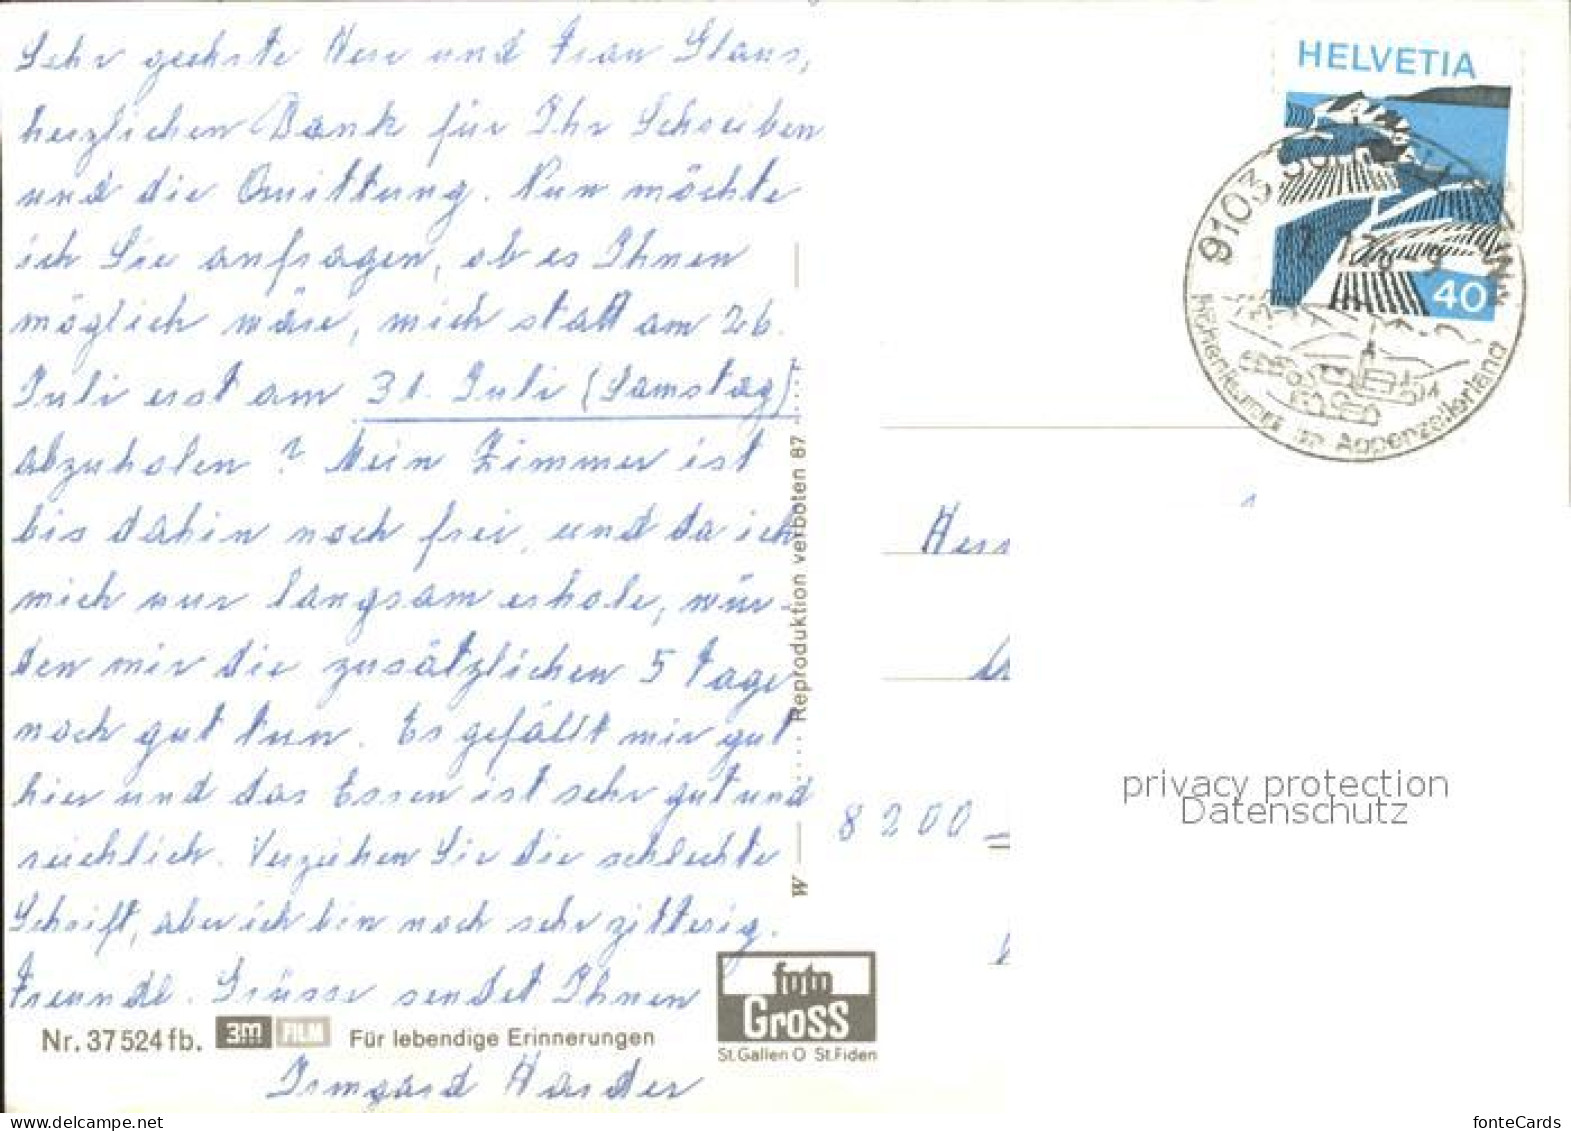 Sehr geehrte Herr und Frau Glaus,
herzlichen Dank für Ihr Schreiben
und die Quittung. Nun möchte
ich Sie anfragen, ob es Ihnen
möglich wäre, mich statt am 26.
Juli erst am 31. Juli (Samstag)
abzuholen? Mein Zimmer ist
bis dahin noch frei, und da ich
mich nur langsam erhole, wür-
den mir die zusätzlichen 5 Tage
noch gut tun. Es gefällt mir gut
hier und das Essen ist sehr gut und
reichlich. Verzeihen Sie die schlechte
Schrift, aber ich bin noch sehr zitterig.
Freundl. Grüsse sendet Ihnen
Irmgard Harder
Nr. 37524 fb. 3M FILM Für lebendige Erinnerungen
foto
Gross
St.Gallen O St.Fiden
W Reproduktion verboten 67
HELVETIA
40
9103
Höhenkurort im Appenzellerland
Herr
8200
privacy protection
Datenschutz
fonteCards
www.delcampe.net